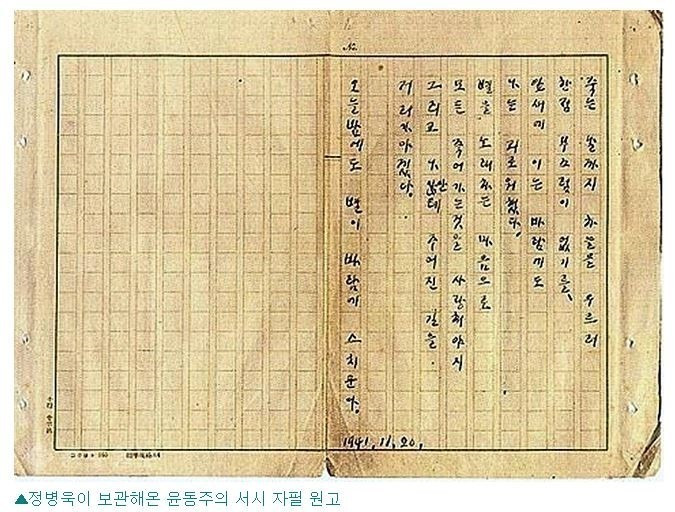 No.
죽는 날까지 하늘을 우르러
한점 부끄럼이 없기를、
잎새에 이는 바람에도
나는 괴로워했다.
별을 노래하는 마음으로
모든 죽어가는것을 사랑해야지
그리고 나안테 주어진 길을
거러가야겠다.
오늘밤에도 별이 바람에 스치운다.
1941. 11. 20.
▲정병욱이 보관해온 윤동주의 서시 자필 원고